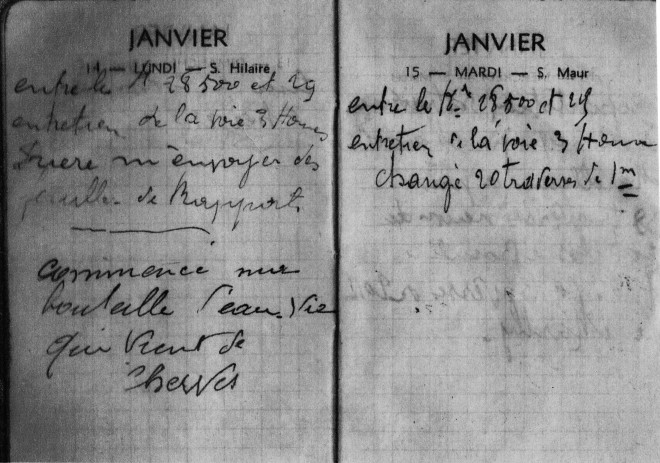 JANVIER
14 — LUNDI — S. Hilaire
entre le K 28500 et 29
entretien de la voie 3 Homes
Priere m'envoyer des
feuilles de Rapport.
commencé une
bouteille d'eau. Vie
qui vient de
Cherves
JANVIER
15 — MARDI — S. Maur
entre le K. 28500 et 29
entretien de la voie 3 Home
changé 20 traverses de 1m